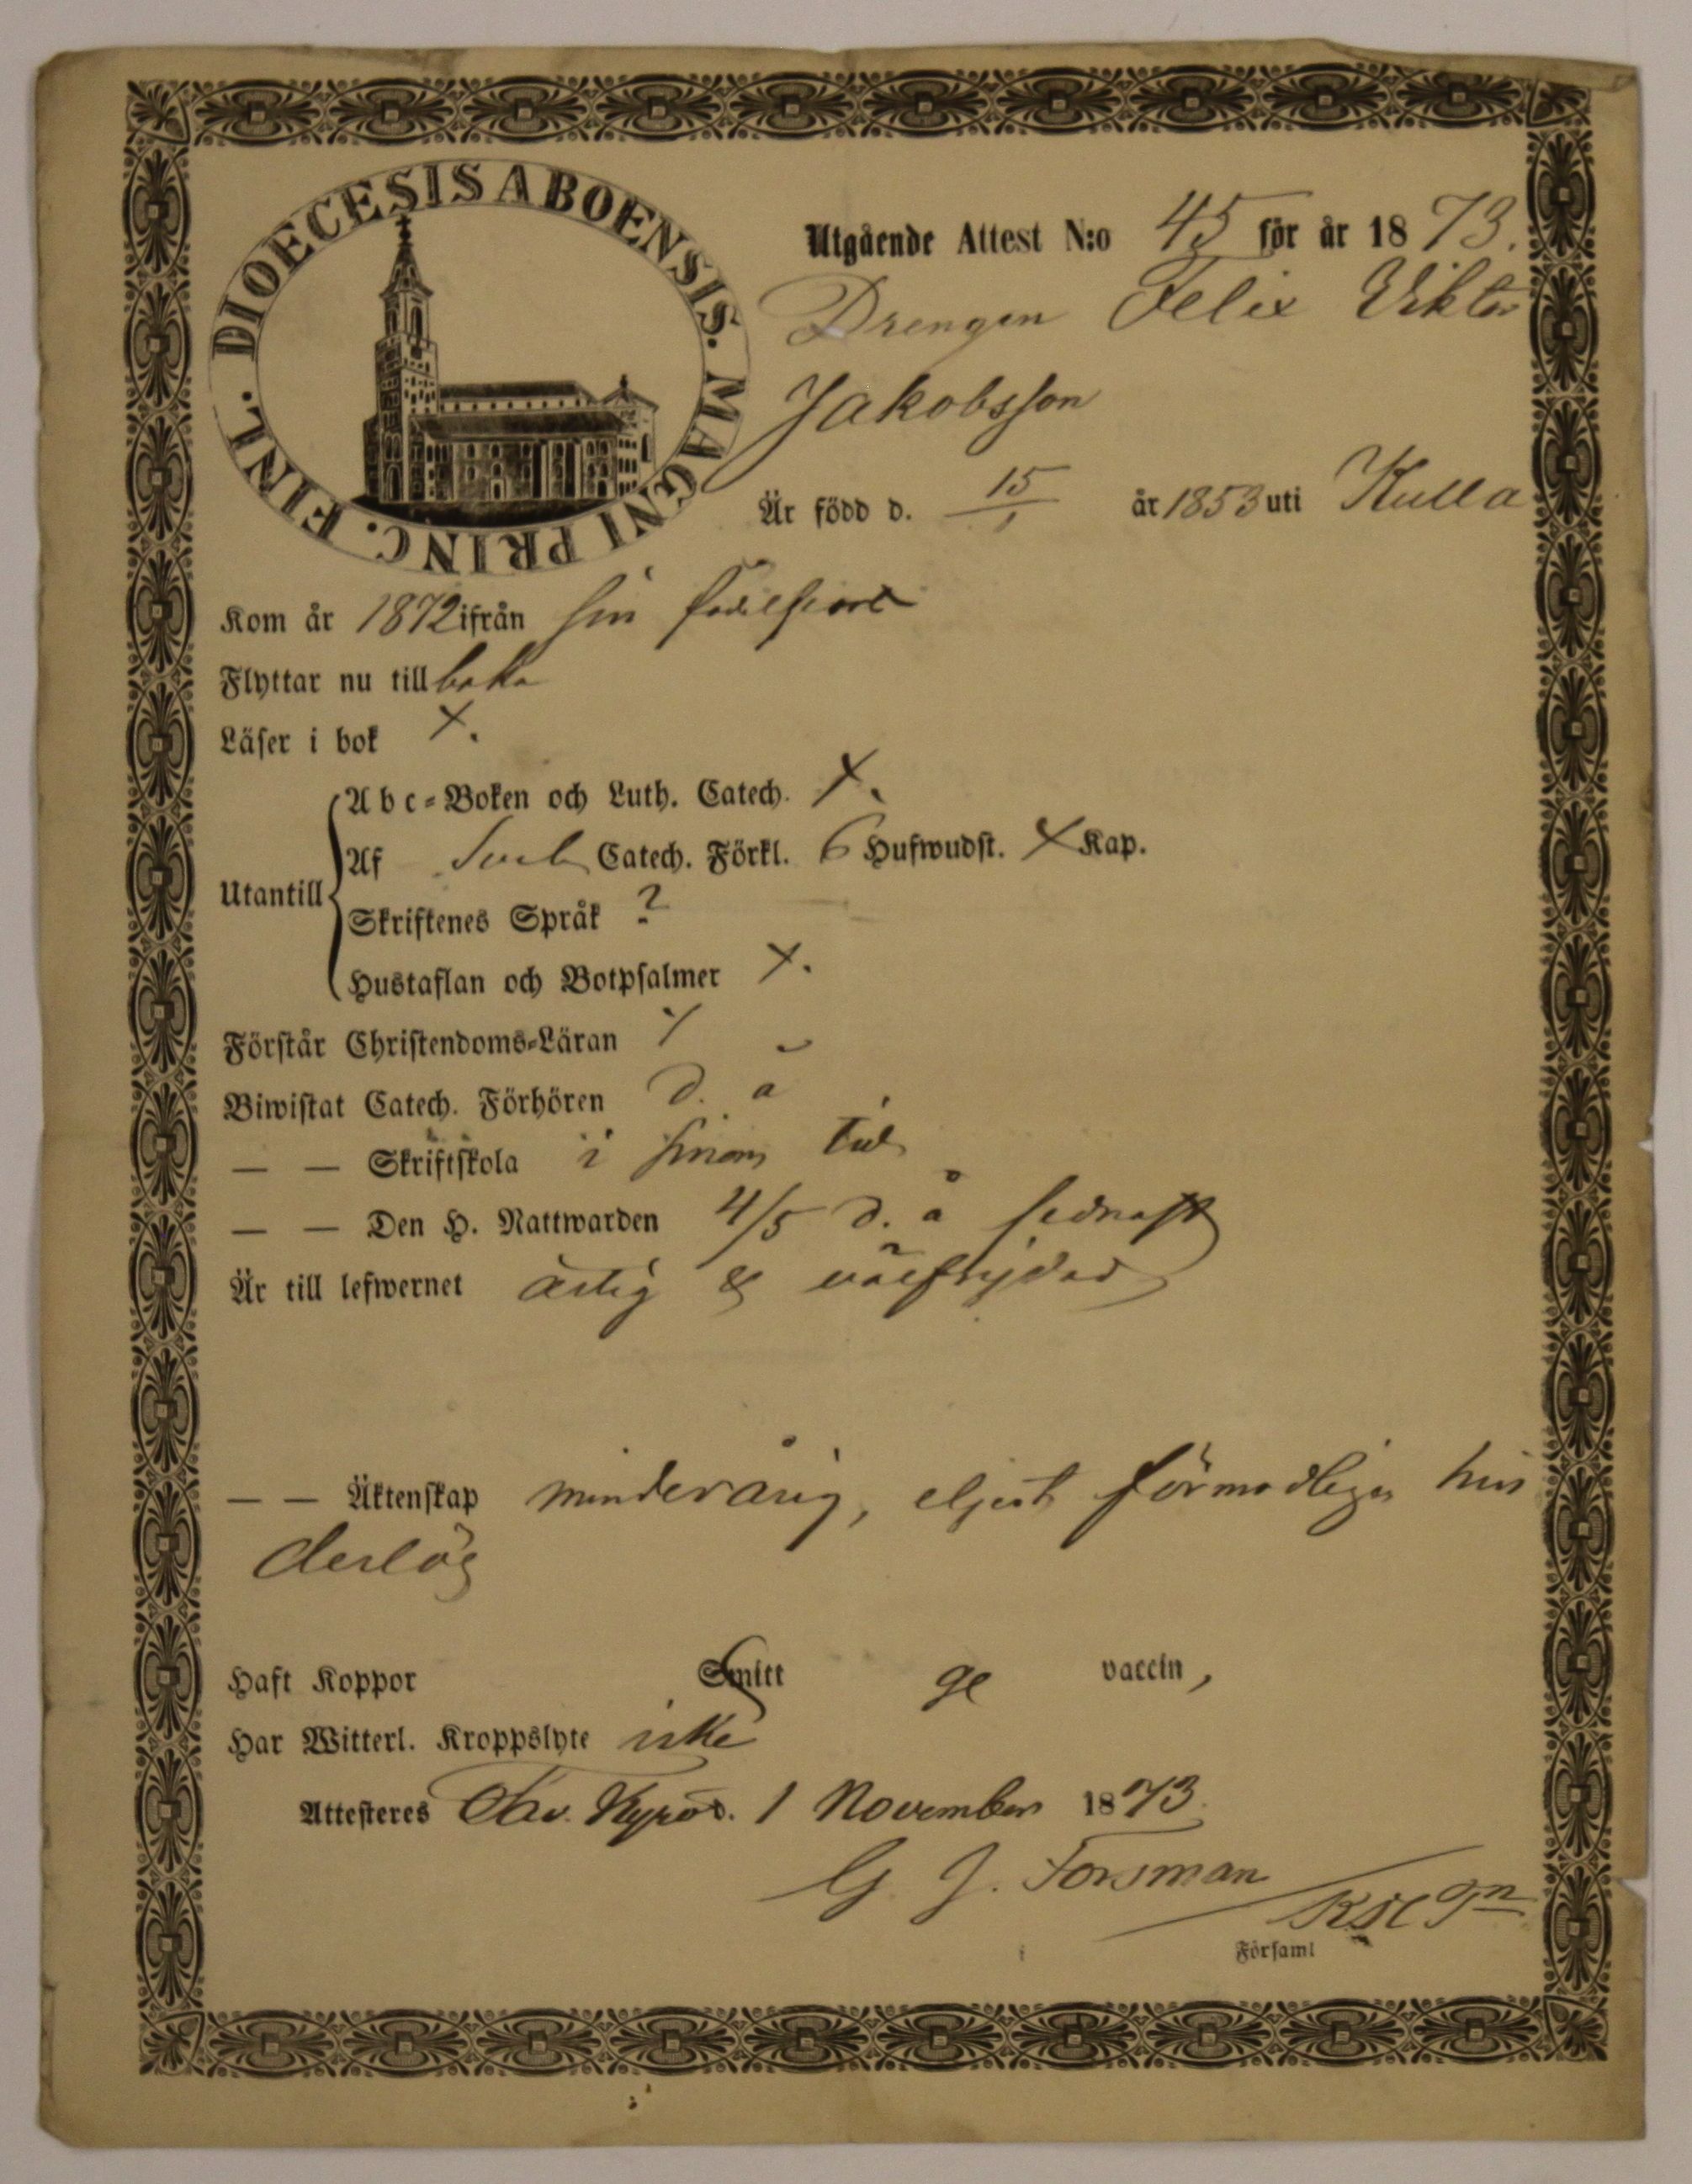 DIOECESIS ABOENSIS. MAGNI PRINC. FINL.
Utgående Attest N:o 45 för år 1873.
Drengen Felix Viktor
Jakobsson
Är född d. 15/1 år 1853 uti Kulla
Kom år 1872 ifrån sin födelseort
Flyttar nu till baka
Läser i bok X.
Utantill
Abc-Boken och Luth. Catech. X.
Af Sveb. Catech. Förkl. 6 Hufwudst. X Kap.
Skriftenes Språk ?
Hustaflan och Botpsalmer X.
Förstår Christendoms-Läran
Biwistat Catech. Förhören d. å
— — Skriftskola i sinom tid
— — Den H. Nattwarden 4/5 d. å sednast
Är till lefwernet ärlig & välfrejdad
— — Äktenskap minderårig, eljest förmodligen hin
derlös
Haft Koppor Smitt ge vaccin,
Har Witterl. Kroppslyte icke
Attesteres Tav. Kyro d. 1 November 1873.
G. J. Forsman
Församl